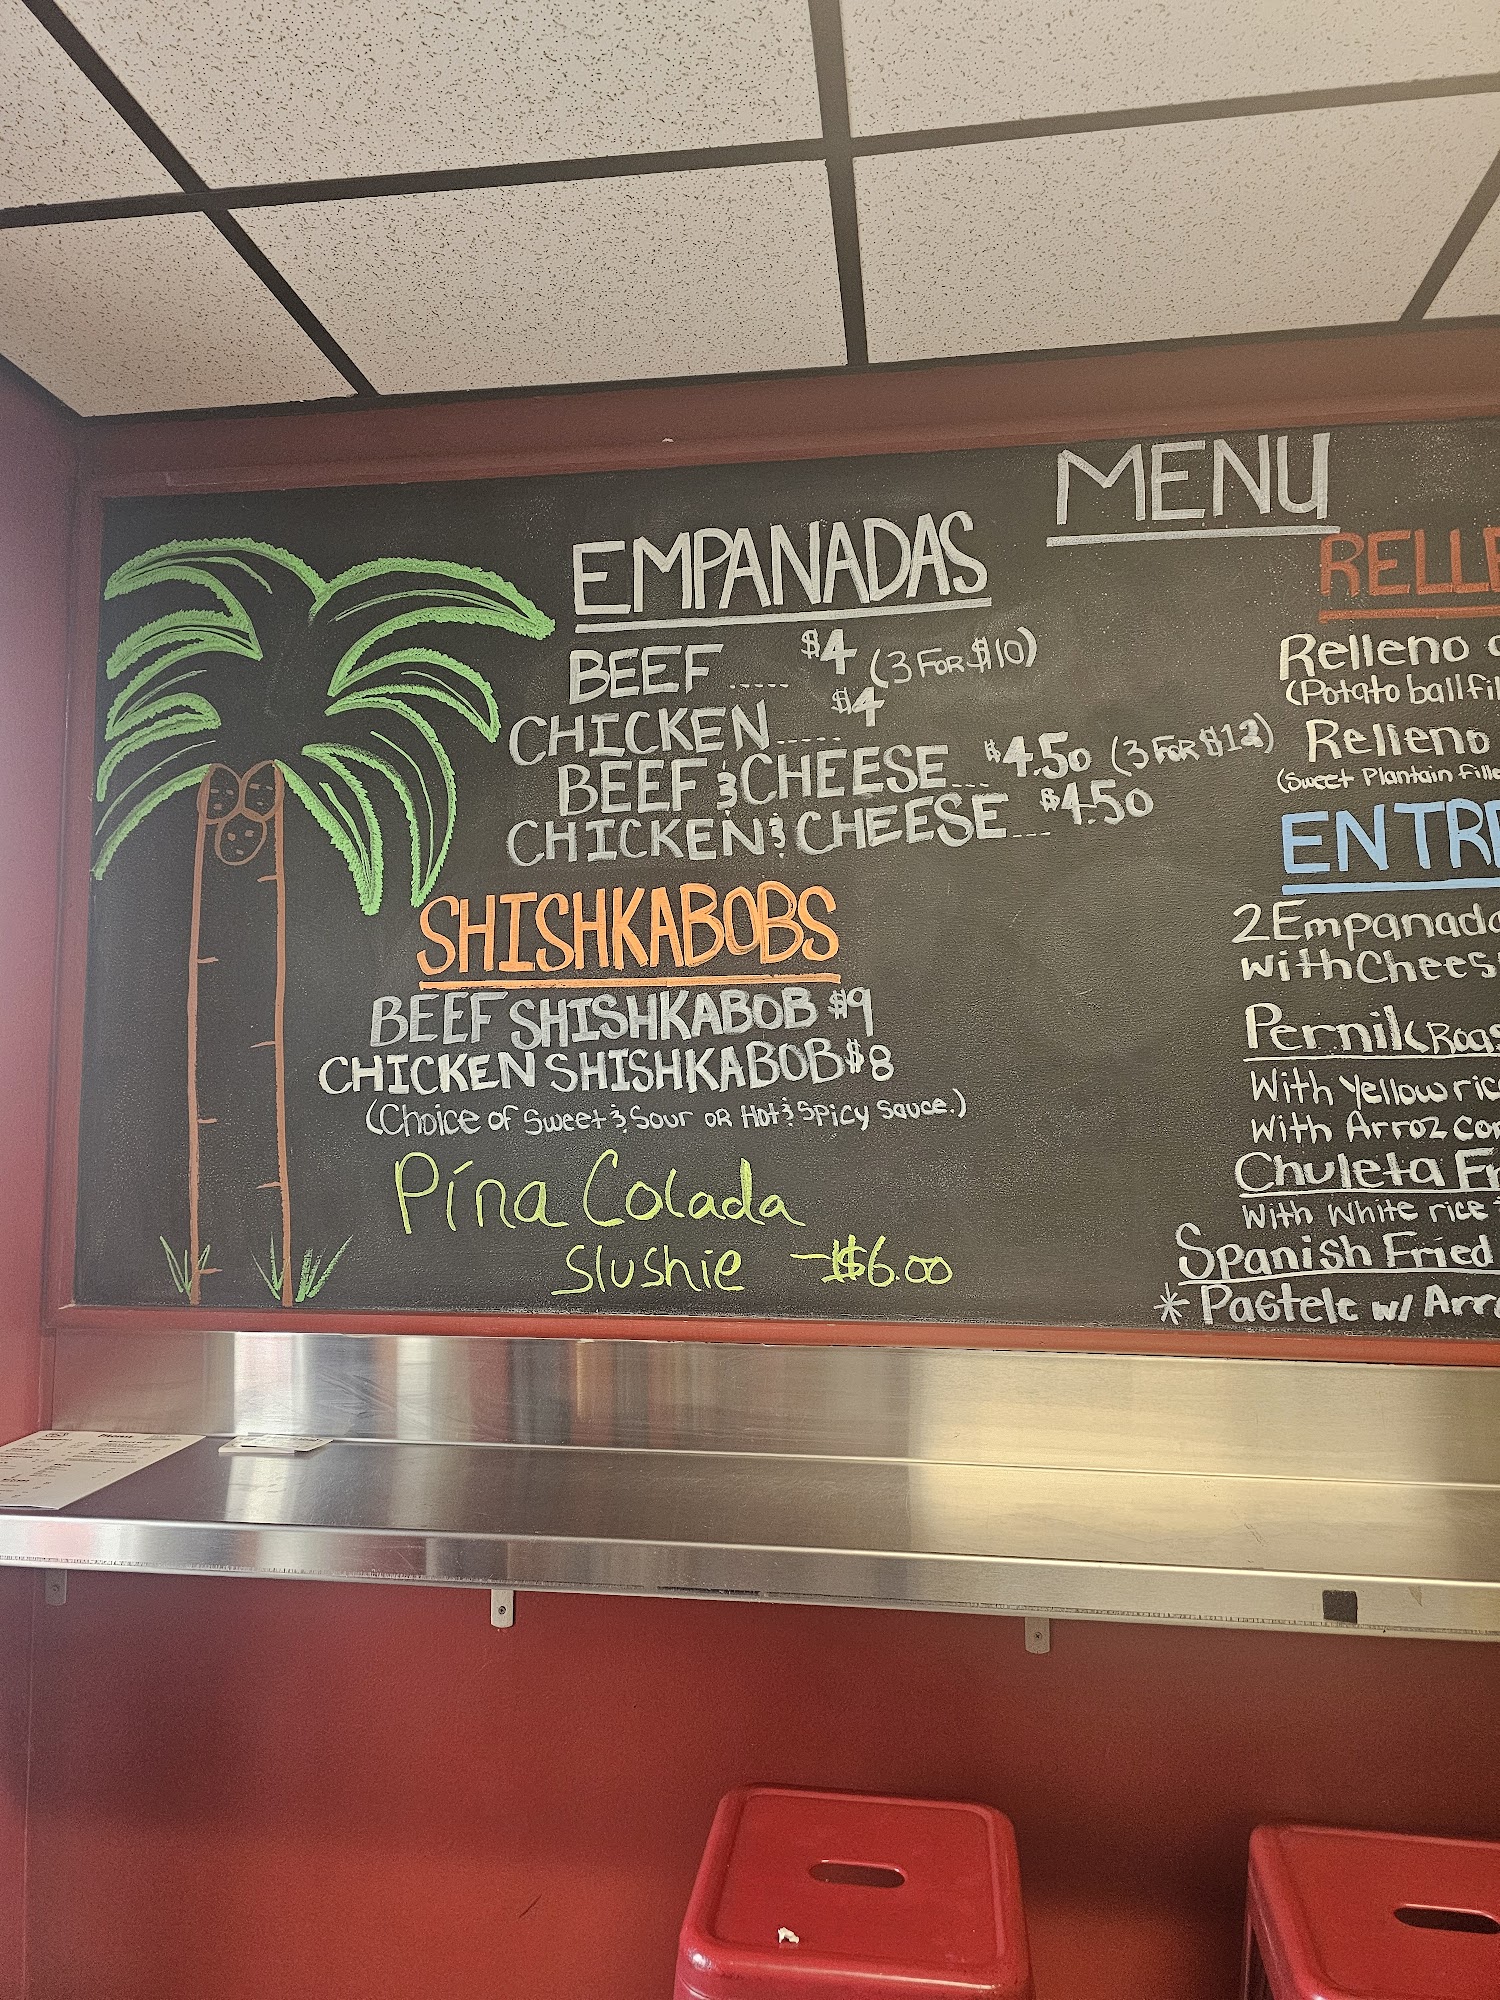 MENU
EMPANADAS
BEEF ..... $4 (3 FOR $10)
CHICKEN ..... $4
BEEF & CHEESE ... $4.50 (3 FOR $12)
CHICKEN & CHEESE ... $4.50
SHISHKABOBS
BEEF SHISHKABOB $9
CHICKEN SHISHKABOB $8
(Choice of Sweet & Sour or Hot & Spicy Sauce.)
Pína Colada
Slushie - $6.00
RELLE
Relleno
(Potato ball fil
Relleno
(Sweet Plantain Fille
ENTR
2 Empanada
with Chees
Pernil (Roas
With Yellow ric
With Arroz con
Chuleta Fr
With White rice
Spanish Fried
* Pastele w/ Arr